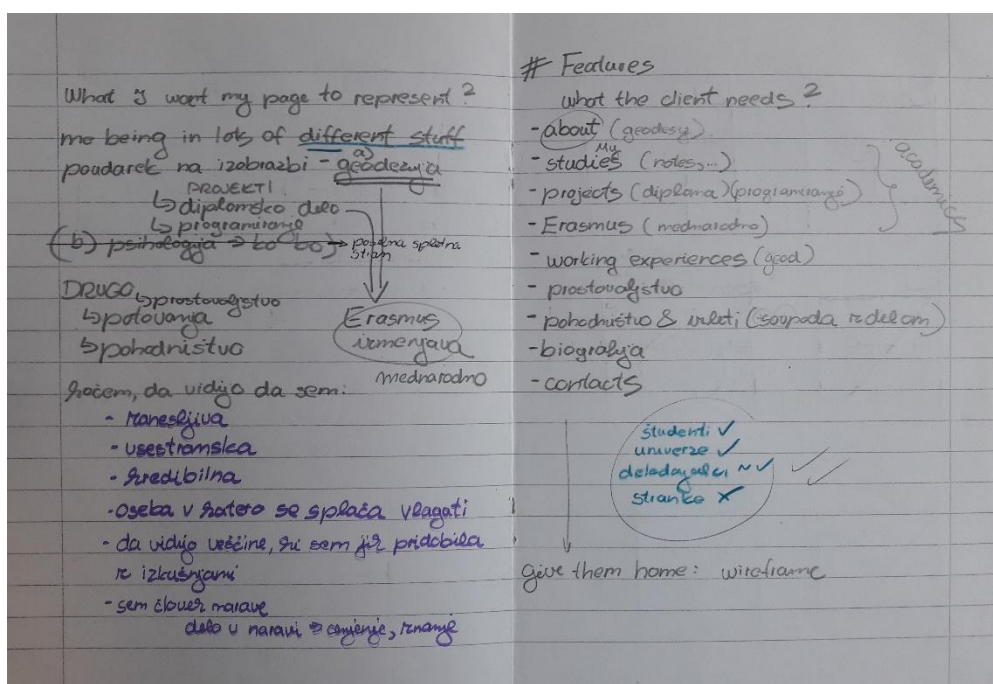 What I want my page to represent?
me being in lots of different stuff
poudarek na izobrazbi - a) geodezija
PROJEKTI
↳ diplomsko delo
↳ programiranje
(b) psihologija → bo bo) → posebna spletna
stran
DRUGO
↳ prostovoljstvo
↳ potovanja
↳ pohodništvo
Erasmus
izmenjava
mednarodno
hočem, da vidijo da sem:
- zanesljiva
- vsestranska
- kredibilna
- oseba v katero se splača vlagati
- da vidijo veščine, ki sem jih pridobila
z izkušnjami
- sem človek narave
delo v naravi → cenjenje, znanje
# Features
what the client needs?
- about (geodesy)
- My studies (notes,...)
- projects (diploma) (programiranje)
- Erasmus (mednarodno)
academics
- working experiences (geod)
- prostovoljstvo
- pohodništvo & izleti (sovpada z delom)
- biografija
- contacts
študenti ✓
univerze ✓
delodajalci ~✓
stranke ✗
give them home: wireframe